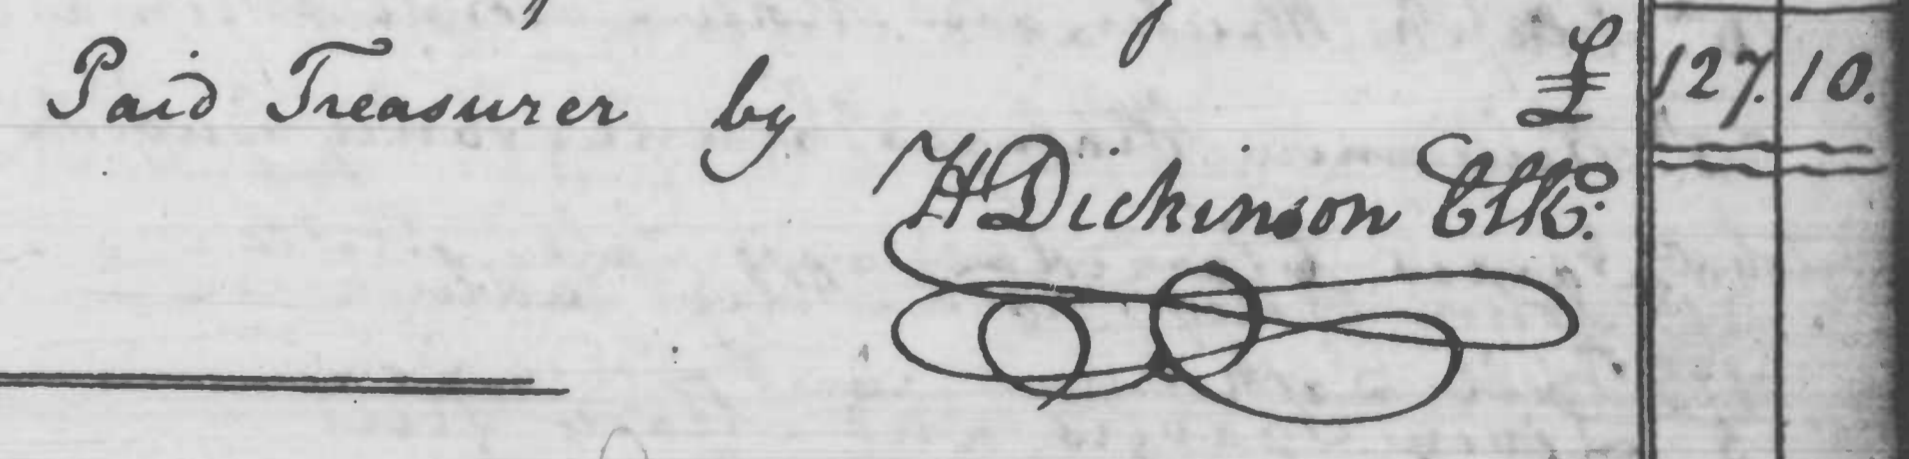 Paid Treasurer by £ 127. 10.
H Dickinson Clk: